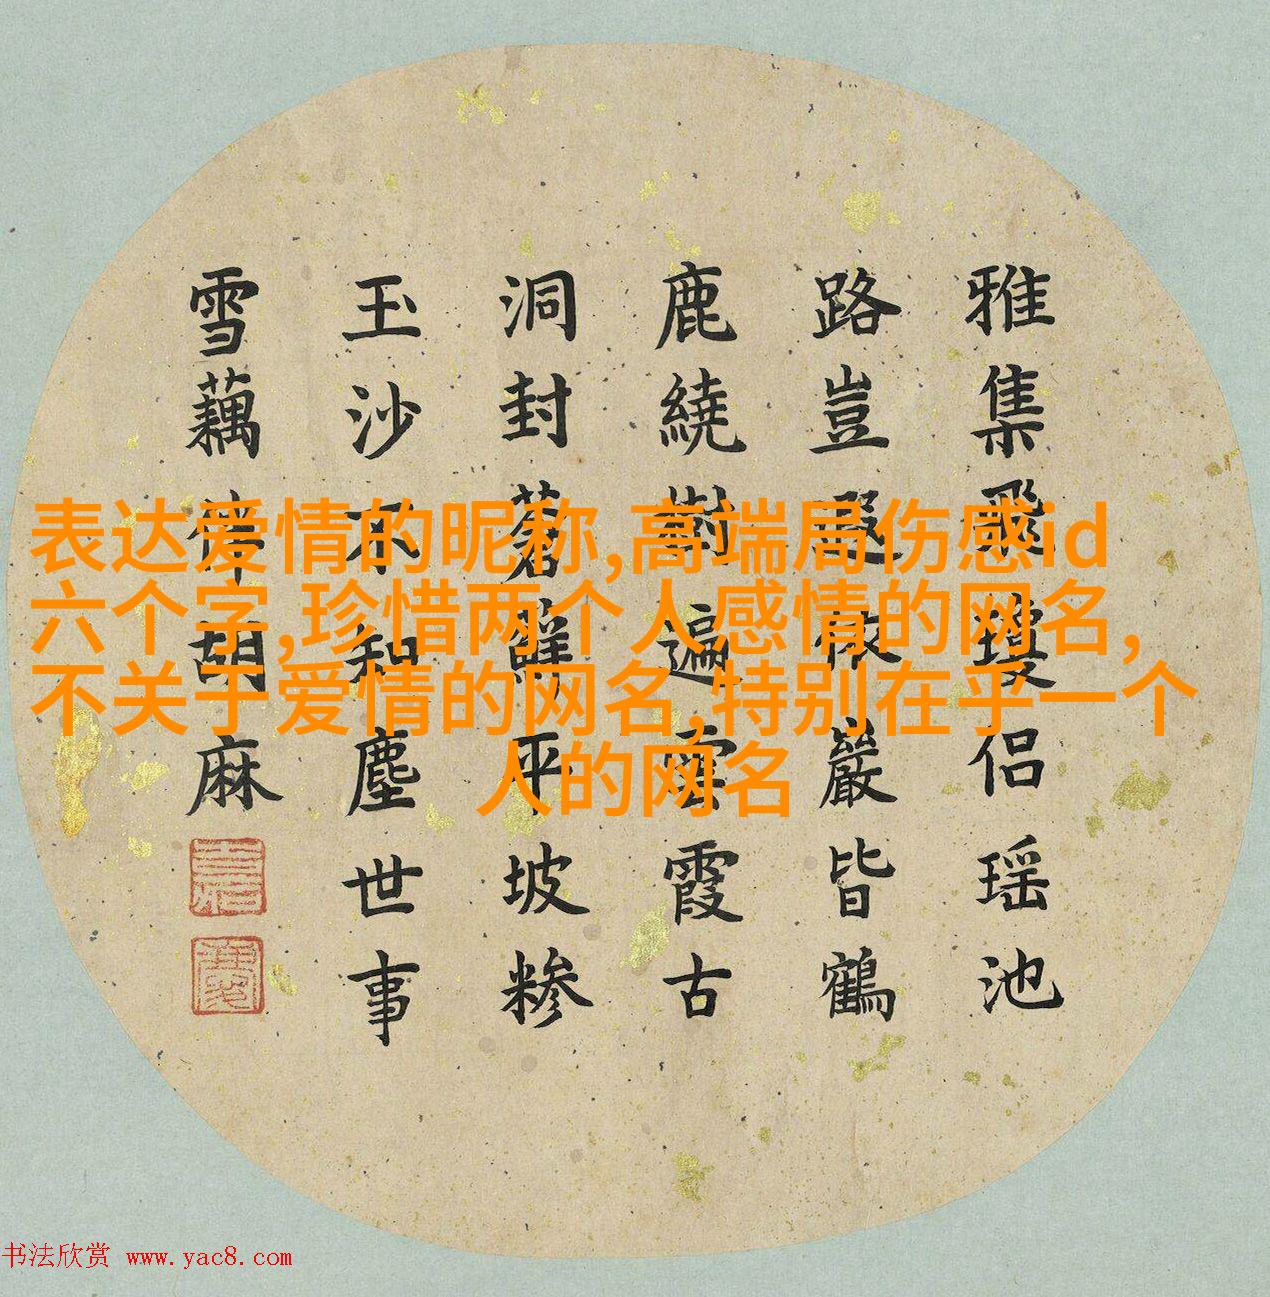 雅集飛瓊侶瑶池
路豈遐依巖皆鶴
鹿繞樹遍雲霞古
洞封蒼蘚平坡糁
玉沙不和塵世事
雪藕伴胡麻
表达爱情的昵称,高端局伤感id
六个字,珍惜两个人感情的网名,
不关于爱情的网名,特别在乎一个
人的网名
书法欣赏 www.yac8.com